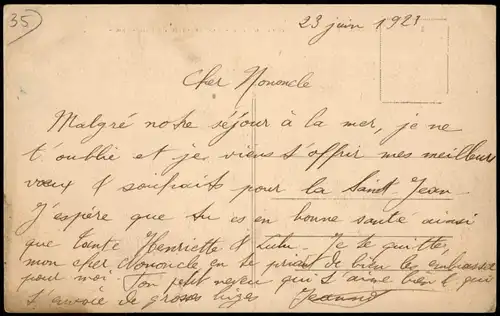 35
23 juin 1921
Cher Nononcle
Malgré notre séjour à la mer, je ne
t'oublie et je viens t'offrir mes meilleurs
vœux & souhaits pour la Saint Jean
J'espère que tu es en bonne santé ainsi
que tante Henriette & Lulu. Je te quitte,
mon cher Nononcle en te priant de bien les embrasser
pour moi. Ton petit neveu qui t'aime bien & qui
t'envoie de gros bizes